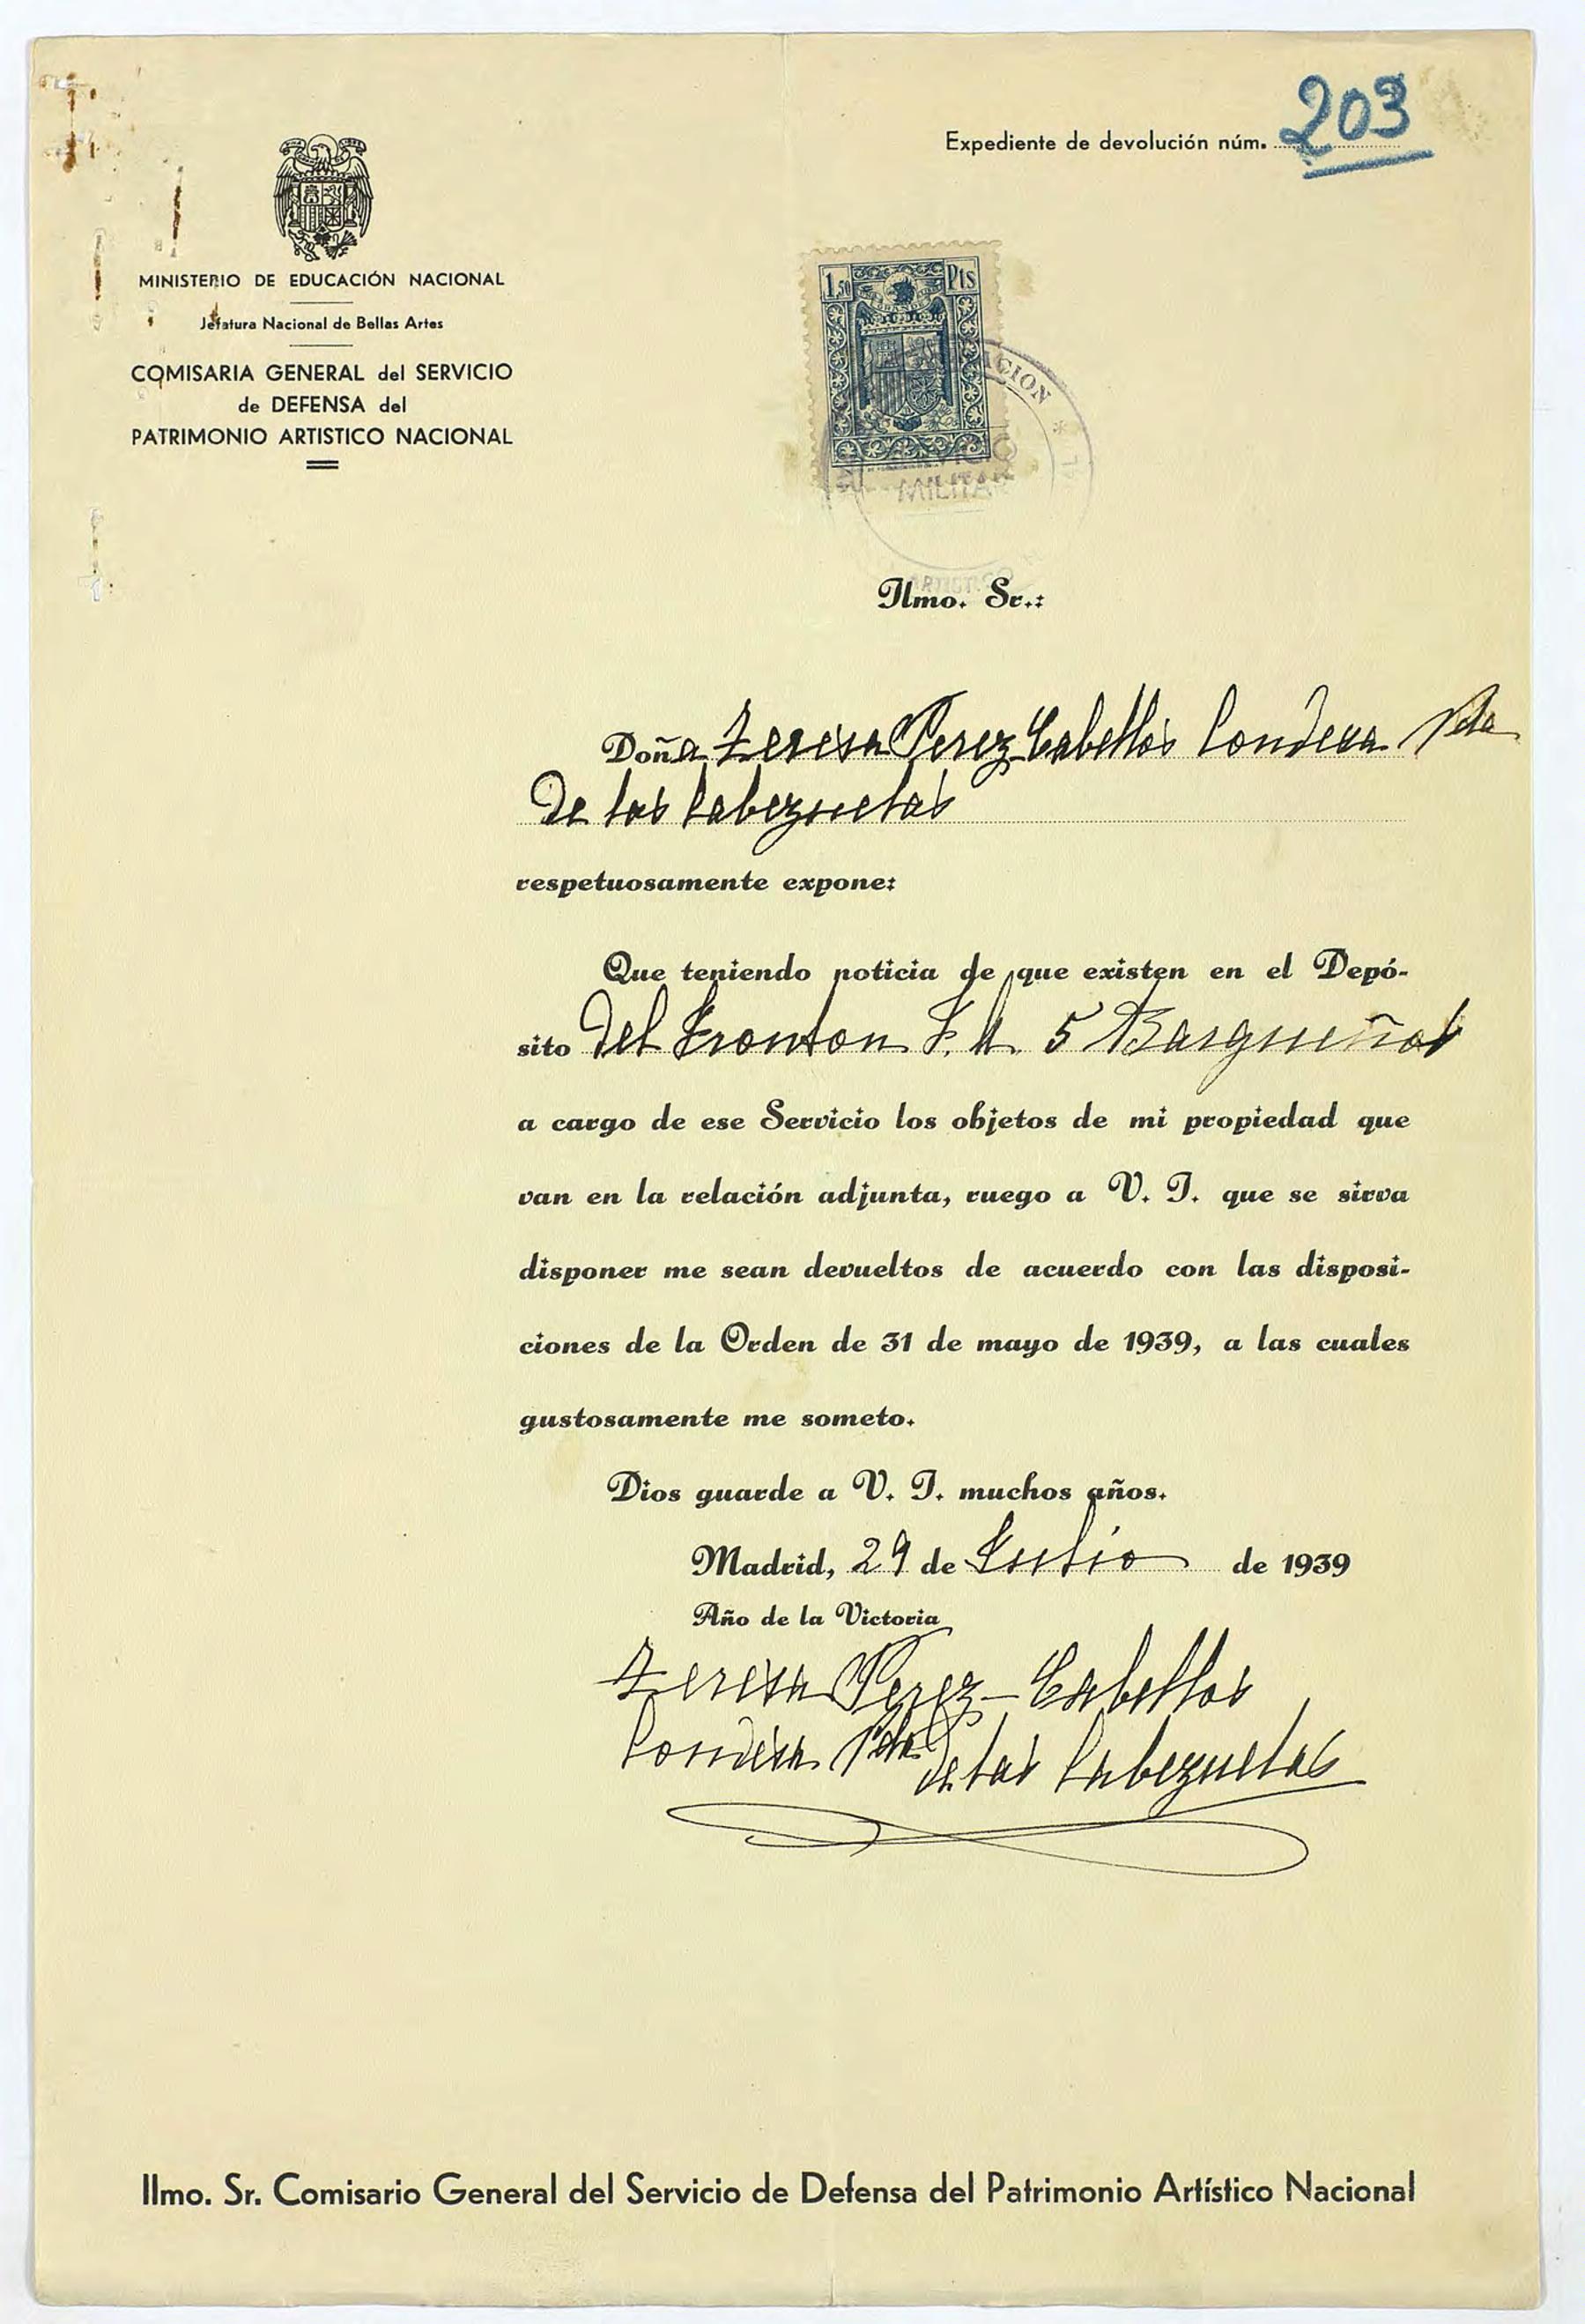 Expediente de devolución núm. 203
MINISTERIO DE EDUCACIÓN NACIONAL
Jefatura Nacional de Bellas Artes
COMISARIA GENERAL del SERVICIO
de DEFENSA del
PATRIMONIO ARTISTICO NACIONAL
1,50 Pts
MILITAR
ARTISTICO
Ilmo. Sr.:
Doña Teresa Perez-Cabellos Condesa Vda
De las Cabezuelas
respetuosamente expone:
Que teniendo noticia de que existen en el Depó-
sito del Fronton 5 Bargueños
a cargo de ese Servicio los objetos de mi propiedad que
van en la relación adjunta, ruego a V. I. que se sirva
disponer me sean devueltos de acuerdo con las disposi-
ciones de la Orden de 31 de mayo de 1939, a las cuales
gustosamente me someto.
Dios guarde a V. I. muchos años.
Madrid, 29 de Julio de 1939
Año de la Victoria
Teresa Perez-Cabellos
Condesa Vda de las Cabezuelas
Ilmo. Sr. Comisario General del Servicio de Defensa del Patrimonio Artístico Nacional